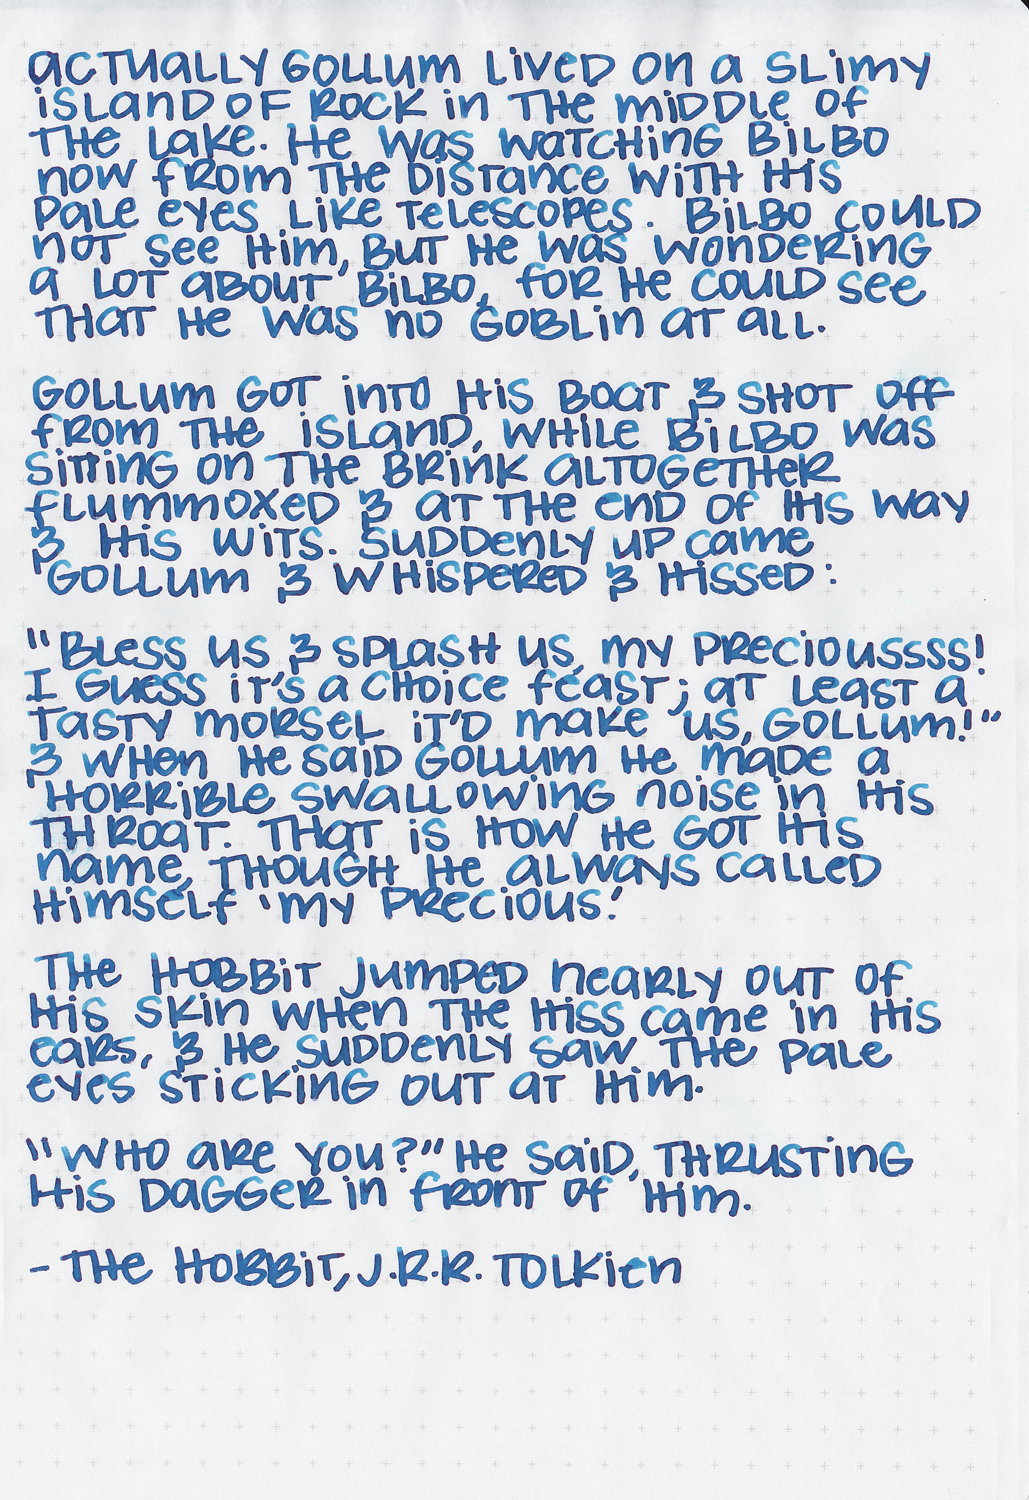 Actually Gollum lived on a slimy
island of rock in the middle of
the lake. He was watching Bilbo
now from the distance with his
pale eyes like telescopes. Bilbo could
not see him, but he was wondering
a lot about Bilbo, for he could see
that he was no goblin at all.
Gollum got into his boat & shot off
from the island, while Bilbo was
sitting on the brink altogether
flummoxed & at the end of his way
& his wits. Suddenly up came
Gollum & whispered & hissed:
"Bless us & splash us, my preciousss!
I guess it's a choice feast; at least a
tasty morsel it'd make us, Gollum!"
& when he said Gollum he made a
horrible swallowing noise in his
throat. That is how he got his
name, though he always called
himself 'my precious.'
The Hobbit jumped nearly out of
his skin when the hiss came in his
ears, & he suddenly saw the pale
eyes sticking out at him.
"Who are you?" he said, thrusting
his dagger in front of him.
- The Hobbit, J.R.R. Tolkien